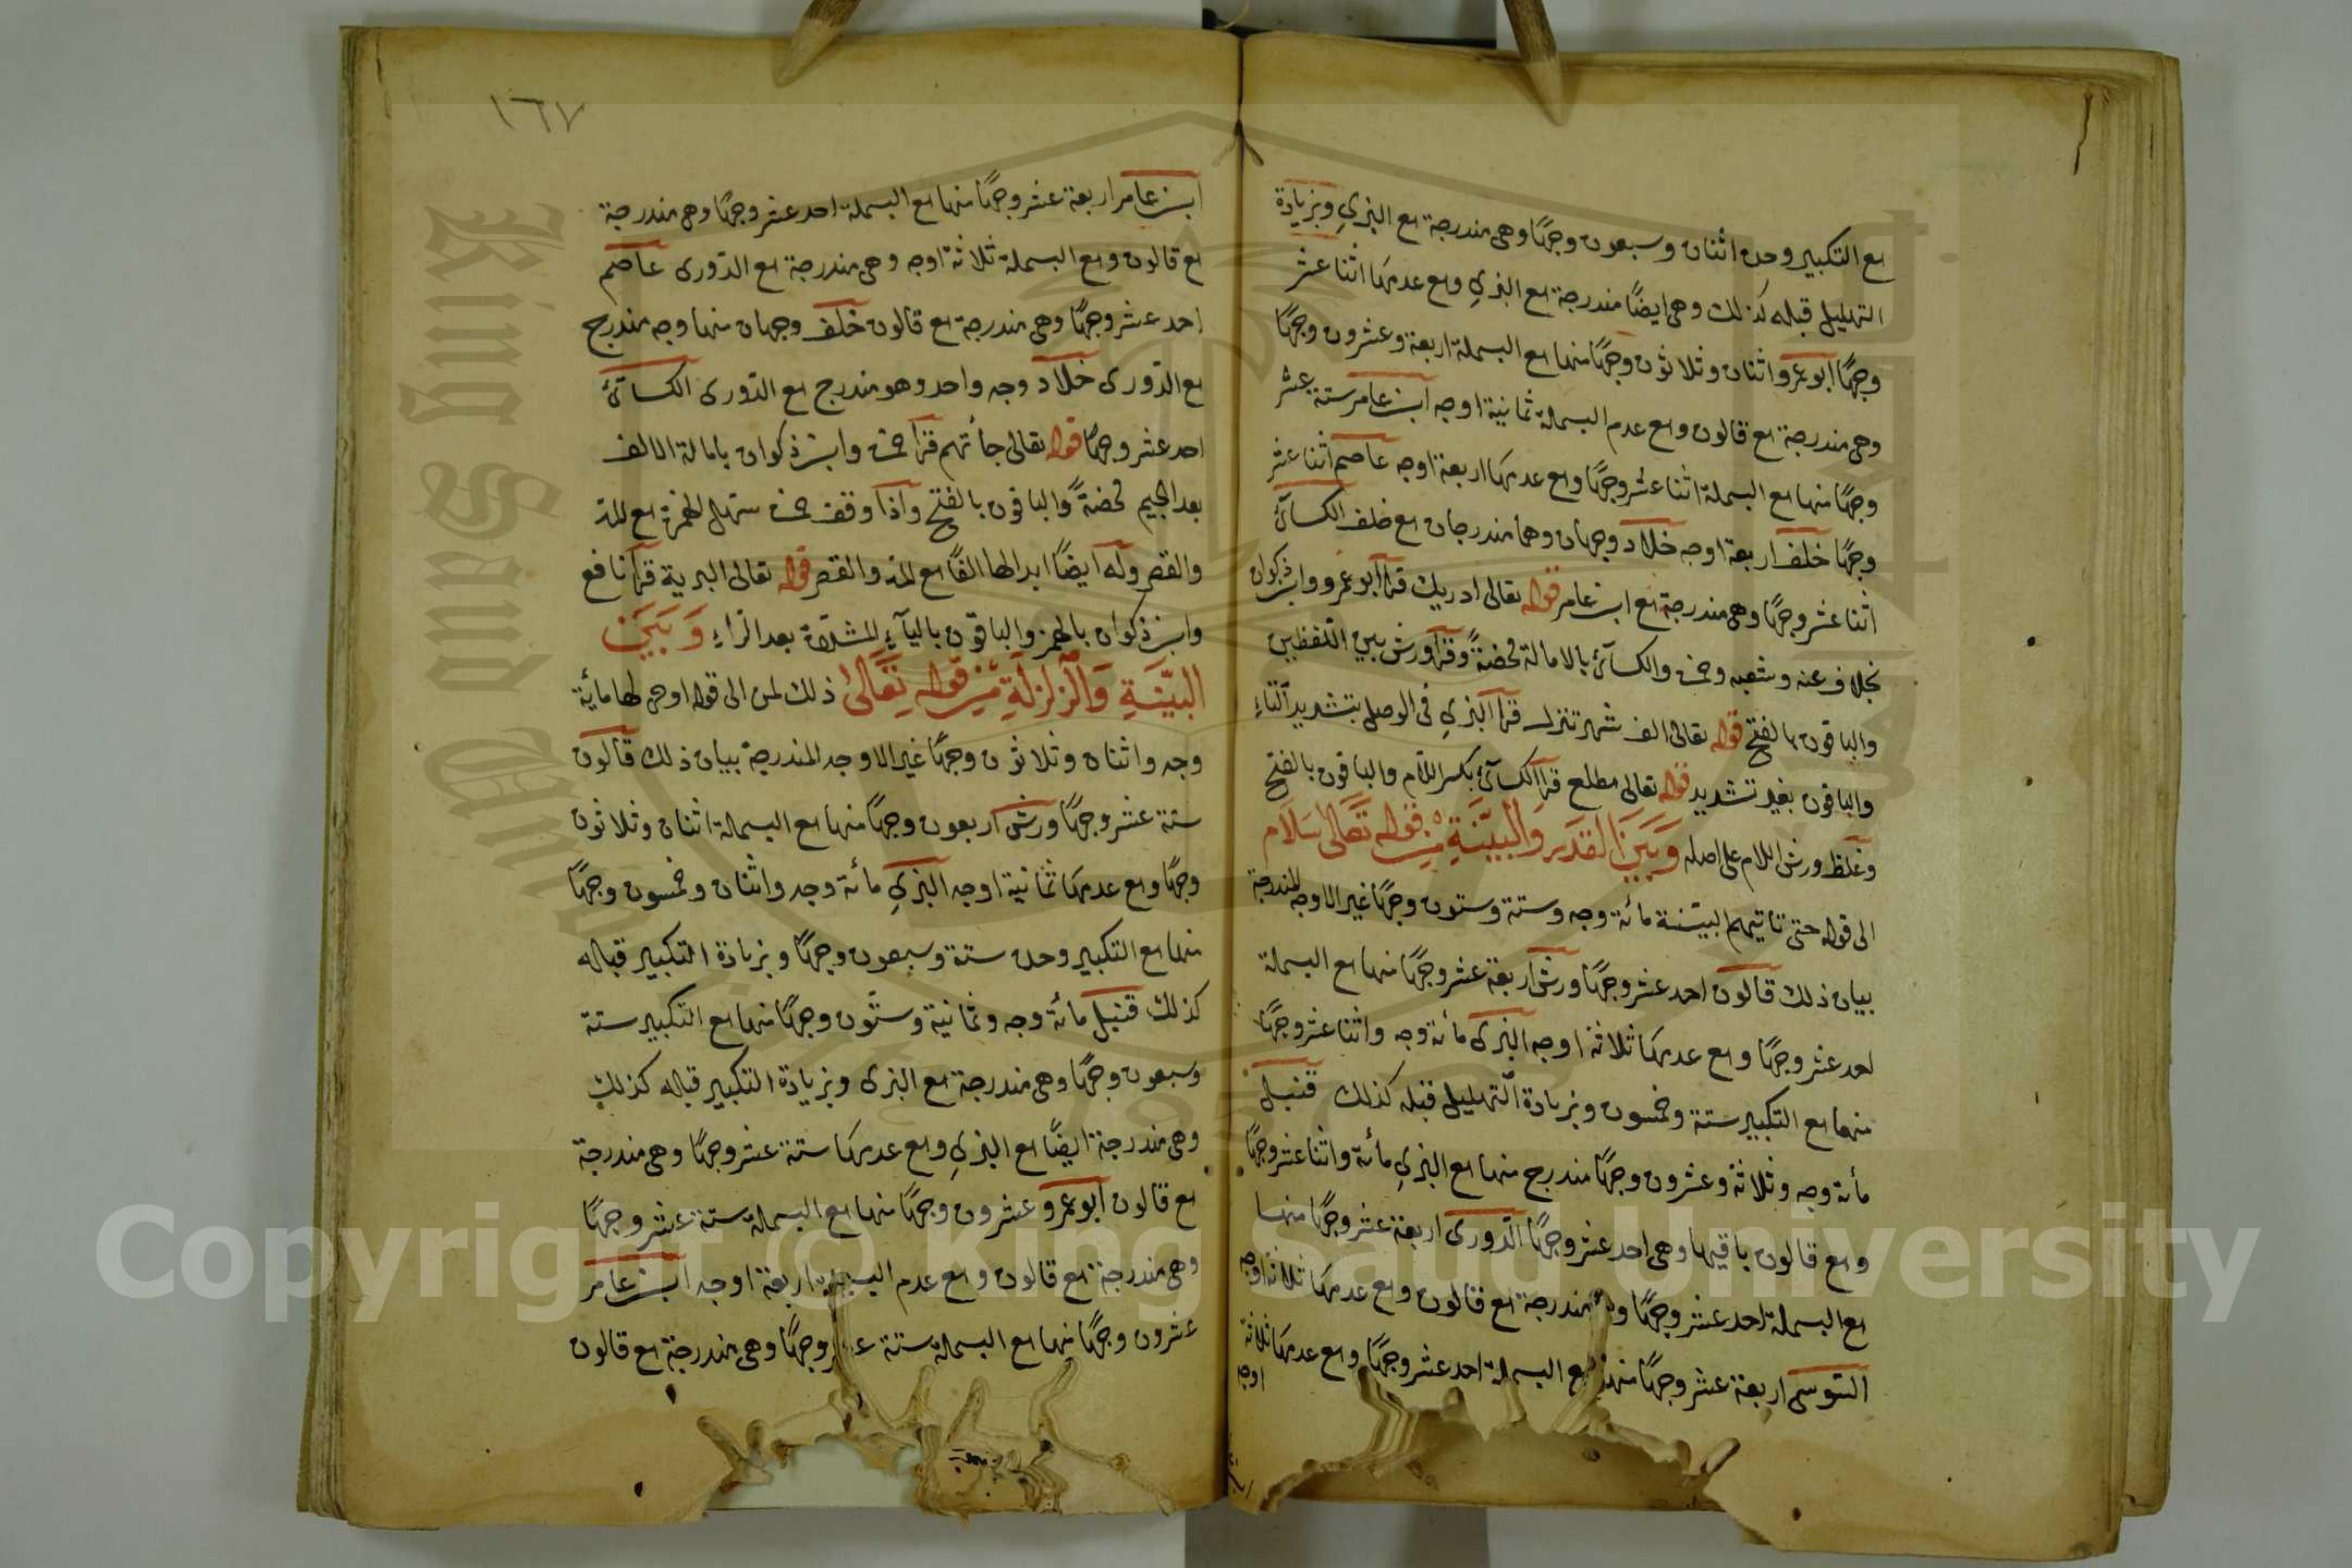 مع التكبير وحده اثنان وسبعون وجهًا وهى مندرجة مع البزيِ وبزيادة
التهليل قبله كذلك وهى ايضًا مندرجة مع البزيِ ومع عدمهما اثنا عشر
وجهًا ابو عمرو اثنان وثلاثون وجهًا منها مع البسملة اربعة وعشرون وجهًا
وهى مندرجة مع قالون ومع عدم البسملة ثمانية اوجه ابن عامر ستة عشر
وجهًا منها مع البسملة اثنا عشر وجهًا ومع عدمها اربعة اوجه عاصم اثنا عشر
وجهًا خلف اربعة اوجه خلاد وجهان وهما مندرجان مع خلف الكسائىُ
اثنا عشر وجهًا وهى مندرجة مع ابن عامر قوله تعالى ادريك قرأ ابو عمرو وابن ذكوان
بخلاف عنه وشعبه وحمزة والكسائىُ بالامالة محضةً وقرأ ورش بين اللفظين
والباقون بالفتح قوله تعالى الف شهر تنزل قرأ البزيِ فى الوصل بتشديد التاءِ
والباقون بغير تشديد قوله تعالى مطلع قرأ الكسائىُ بكسر اللام والباقون بالفتح
وغلظ ورش اللام على اصله وَبَيْنَ القدر وَالبيّنَةِ مِنْ قوله تَعَالىٰ سَلَام
الى قوله حتى تاتيهم البيّنة مائة وجه وستة وستون وجهًا غير الاوجه المندرجة
بيان ذلك قالون احد عشر وجهًا ورش اربعة عشر وجهًا منها مع البسملة
احد عشر وجهًا ومع عدمها ثلاثة اوجه البزى مائة وجه واثنا عشر وجهًا
منها مع التكبير ستة وخمسون وبزيادة التهليل قبله كذلك قنبل
مأة وجه وثلاثة وعشرون وجهًا مندرج منها مع البزيِ مائة واثنا عشر وجهًا
ومع قالون باقيها وهى احد عشر وجهًا الدّورى اربعة عشر وجهًا منها
مع البسملة احد عشر وجهًا وهى مندرجة مع قالون ومع عدمها ثلاثة اوجه
السّوسى اربعة عشر وجهًا منها مع البسملة احد عشر وجهًا ومع عدمها ثلاثة
اوجه
١٦٧
ابن عامر اربعة عشر وجهًا منها مع البسملة احد عشر وجهًا وهى مندرجة
مع قالون ومع البسملة ثلاثة اوجه وهى مندرجة مع الدّورى عاصم
احد عشر وجهًا وهى مندرجة مع قالون خلف وجهان منها وجه مندرج
مع الدّورى خلاد وجه واحد وهو مندرج مع الدّورى الكسائىُ
احد عشر وجهًا قوله تعالى جأتهم قرأ حمزة وابن ذكوان بامالة الالف
بعد الجيم محضةً والباقون بالفتح واذا وقف حمزة سهل الهمزة مع المد
والقصر وله ايضًا ابدالها الفًا مع المد والقصر قوله تعالى البرية قرأ نافع
وابن ذكوان بالهمز والباقون بالياءِ المشدّدة بعد الراءِ وَبَيْنَ
البَيِّنَةِ وَالزلزلةِ مِنْ قوله تَعَالىٰ ذلك لمن الى قوله اوحى لها مائة
وجه واثنان وثلاثون وجهًا غير الاوجه المندرجة بيان ذلك قالون
ستة عشر وجهًا ورش اربعون وجهًا منها مع البسملة اثنان وثلاثون
وجهًا ومع عدمها ثمانية اوجه البزيِ مائة وجه واثنان وخمسون وجهًا
منها مع التكبير وحده ستة وسبعون وجهًا وبزيادة التكبير قباله
كذلك قنبل مائة وجه وثمانية وستّون وجهًا منها مع التكبير ستة
وسبعون وجهًا وهى مندرجة مع البزى وبزيادة التكبير قباله كذلك
وهى مندرجة ايضًا مع البزيِ ومع عدمها ستة عشر وجهًا وهى مندرجة
مع قالون ابو عمرو عشرون وجهًا منها مع البسملة ستة عشر وجهًا
وهى مندرجة مع قالون ومع عدم البسملة اربعة اوجه ابن عامر
عشرون وجهًا منها مع البسملة ستة عشر وجهًا وهى مندرجة مع قالون
King Saud University
Copyright © King Saud University